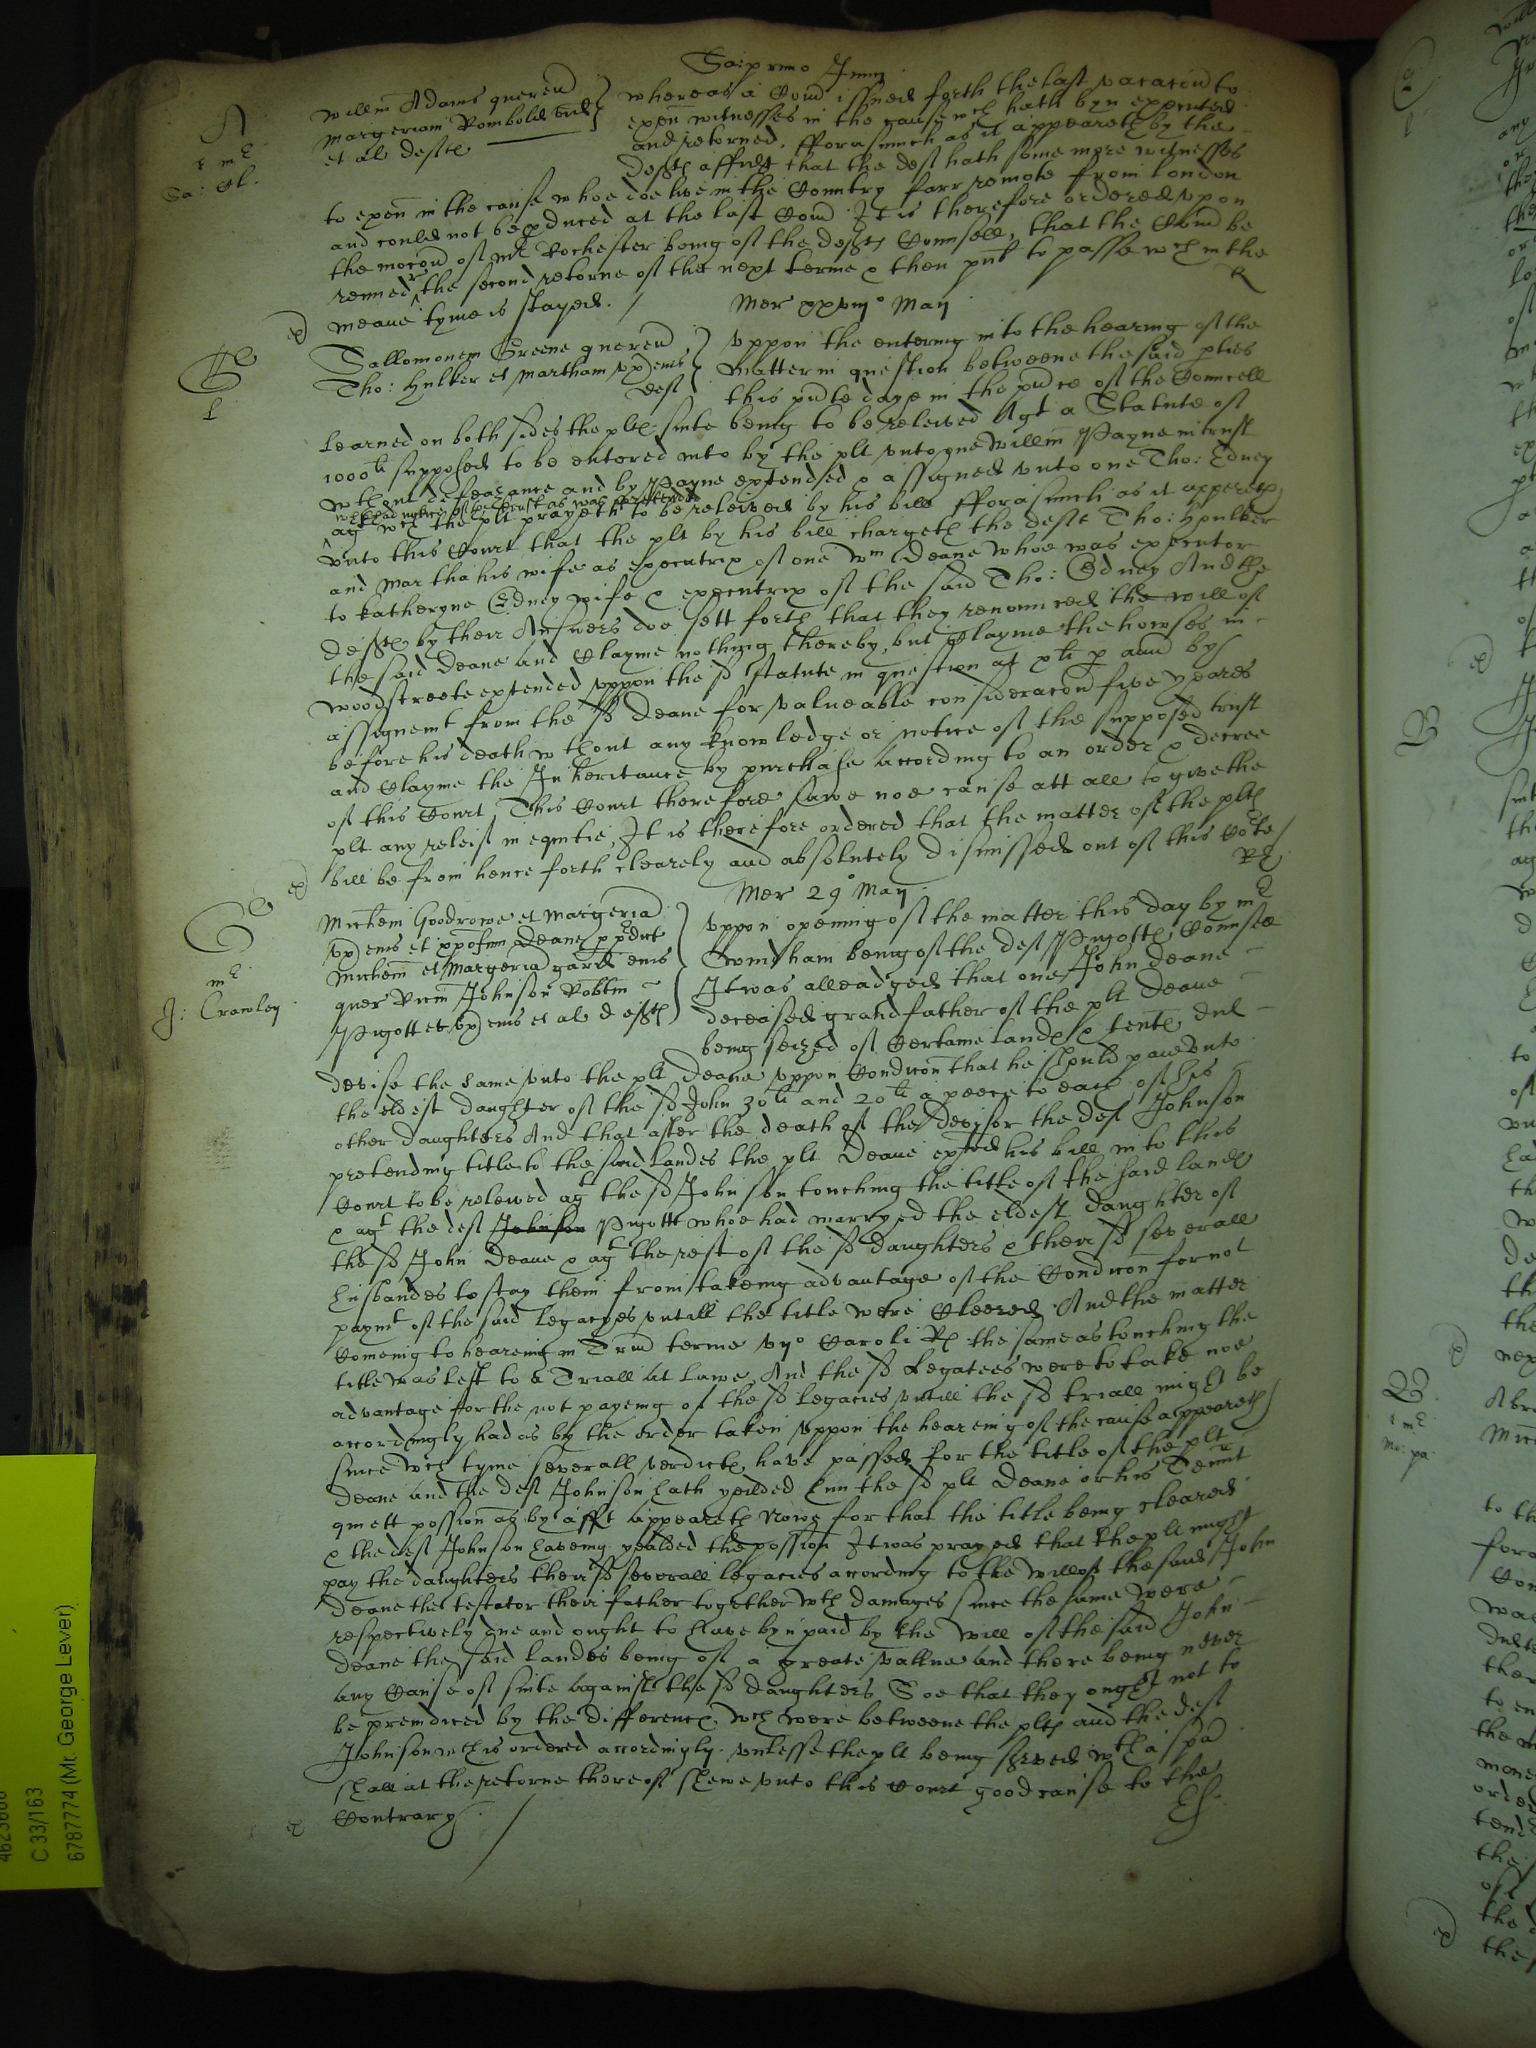 Sa: primo Junij
A
Willm Adams quereñ
Margeriam Rombold vid
et al deftes
whereas a Com̃ issued forth the last vacac̃on to
exam̃ witnesses in the cause wch hath byn executed
and retorned. fforasmuch as it appeareth by the
deftes affidt that the deft hath some more witnesses
to exam̃ in the cause whoe doe live in the Countrey farr remote from London
and could not be pduced at the last Com̃ It is therefore ordered upon
the moc̃on of Mr Rochester being of the deftes Counsell, that the Com̃ be
renued the second retorne of the next terme & then pnt to passe wch in the
meane tyme is stayed.
R
Mer xxviijo Maij
G
Sallomonem Greene quereñ
Tho: Hulker et Martham uxem eius
deft
Uppon the entering into the hearing of the
Matter in question betweene the said pties
this pñte daye in the pñce of the Councell
learned on both sides the pltes suite being to be releived Agt a Statute of
1000li supposed to be entered into by the plt unto one Willm Payne in trust
wthout defeazance and by Payne extended & assigned unto one Tho: Edney
wch had notice of the trust as was pretended
agt wch the plt prayeth to be releived by his bill fforasmuch as it appeareth
unto this Court that the plt by his bill chargeth the defte Tho: Hulker
and Martha his wife as executrix of one Wm Deane whoe was executor
to Katheryne Edney wife & executrix of the said Tho: Edney And the
deftes by their Answers doe sett forth that they renounced the will of
the said Deane and Clayme nothing thereby, but Clayme the howses in
woodstreete extended uppon the sd statute in question at xli p ann̄ by
assignemt from the sd Deane for valueable considerac̃on five yeares
before his death wthout any knowledge or notice of the supposed trust
and Clayme the Inheritance by purchase according to an order & decree
of this Court, This Court therefore sawe noe cause att all to give the
plt any releif in equitie, It is therefore ordered that the matter of the pltes
bill be from henceforth clearely and absolutely dismissed out of this Corte
Mer 29o Maij
G
mr
J: Crawley
Michem Goodrowe et Margeria
uxem eius et xpofrm Deane
Michem et Margeria gard eius
quer Ricm Johnson Robtm
Pigott et uxem eius et al deftes
Uppon opening of the matter this day by mr
Wyndham being of the deft Pigottes Counsell
It was alleadged that one John Deane
deceased grandfather of the plt Deane
being seized of Certaine landes & tentes did
devise the same unto the plt Deane uppon Condic̃on that he should paie unto
the eldest daughter of the sd John 30li and 20li a peece to each of his
other daughters And that after the death of the Devisor the deft Johnson
pretending title to the said landes the plt Deane exhited his bill into this
Court to be releived agt the sd Johnson touching the title of the said landes
& agt the deft Johnson Pigott whoe had marryed the eldest daughter of
the sd John Deane & agt the rest of the sd daughters & their sd severall
husbandes to stay them from takeing advantage of the Condic̃on for not
paymt of the said legacyes untill the title were Cleered And the matter
Comeing to heareing in Trin̄ terme vijo Caroli Rs the same as touching the
title was left to a Triall at lawe And the sd legatees were to take noe
advantage for the not payeing of the sd legacies untill the sd triall might be
accordingly had as by the order taken uppon the heareing of the cause appeareth
since wch tyme severall verdictes have passed for the title of the plt
Deane and the deft Johnson hath yeilded unto the sd plt Deane or his Tennt
quiett possion as by afft appeareth Nowe for that the title being cleared
& the deft Johnson haveing yealded the possion It was prayed that the plt might
pay the daughters their sd severall legacies according to the will of the said John
Deane the testator their father together wth damages since the same were
respectively due and ought to have byn paid by the will of the said John
Deane the said landes being of a greate vallue and there being never
any Cause of suite against the sd daughters Soe that they ought not to
be preiudiced by the differences wch were betweene the pltes and the deft
Johnson wch is ordered accordingly unlesse the plt being served wth a spa
shall at the retorne thereof shewe unto this Court good cause to the
Contrary.
C 33/163
6787774 (Mr. George Lever)